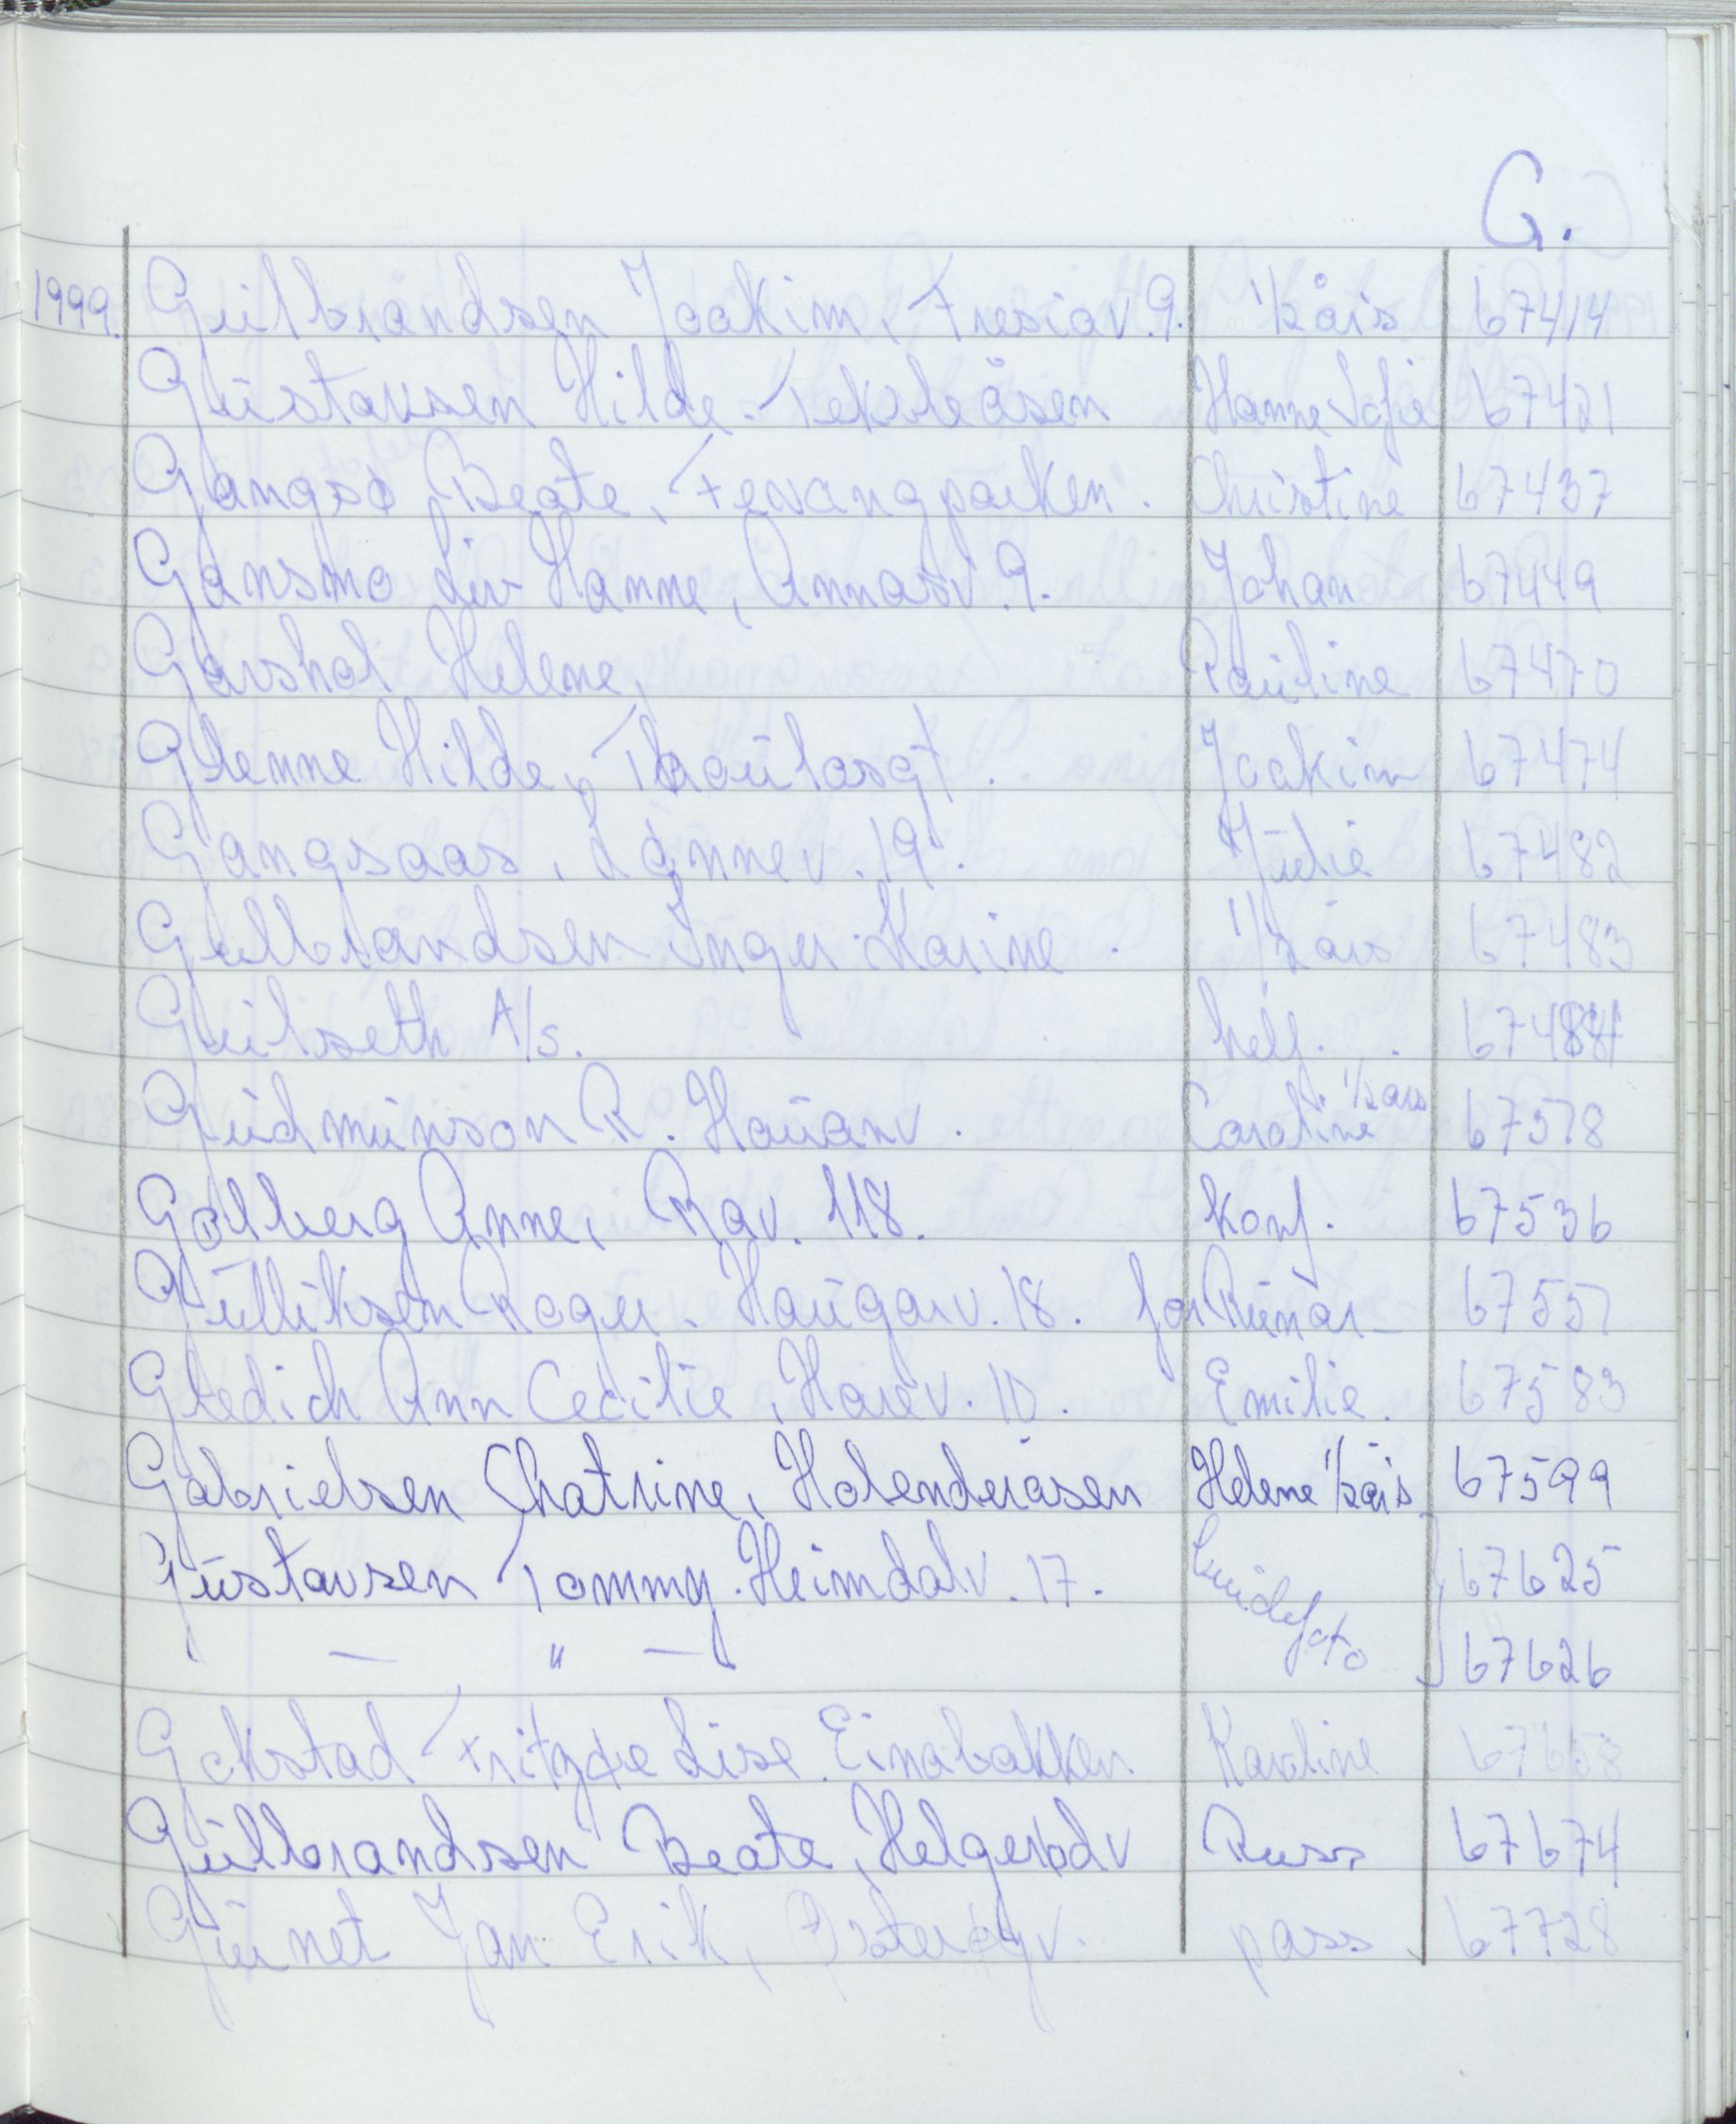 G.
1999. Gulbrandsen Joakim, Fresiav. 9. 1/2 års 67414
Gustavsen Hilde. Hanne Sofie 67421
Gangsø Beate, Fevangparken. Christine 67437
Gansmo Liv Hanne, Annasv. 9. Johan 67449
Garshol Helene, Pauline 67470
Glenne Hilde, Joakim 67474
Gangsaas, Lønnev. 19. Julie 67482
Gulbrandsen Inger Karine. 1/2 års 67483
Gulseth A/S. 67484
Gudmunson R. Hauanv. Caroline 1/2 års 67578
Golberg Anne, Rav. 118. Konf. 67536
Gulliksen Roger. Haugarv. 18. for Runar 67557
Gledich Ann Cecilie, Harev. 10. Emilie. 67583
Gabrielsen Chatrine, Holenderåsen Helene 1/2 års 67599
Gustavsen Tommy. Heimdalv. 17. 67625
— " — 67626
Gokstad Fritzøe Lise. Einabakken Karoline 67658
Gulbrandsen Beate, Helgerødv Russ 67674
Jan Erik, Østerøyv. pass 67728